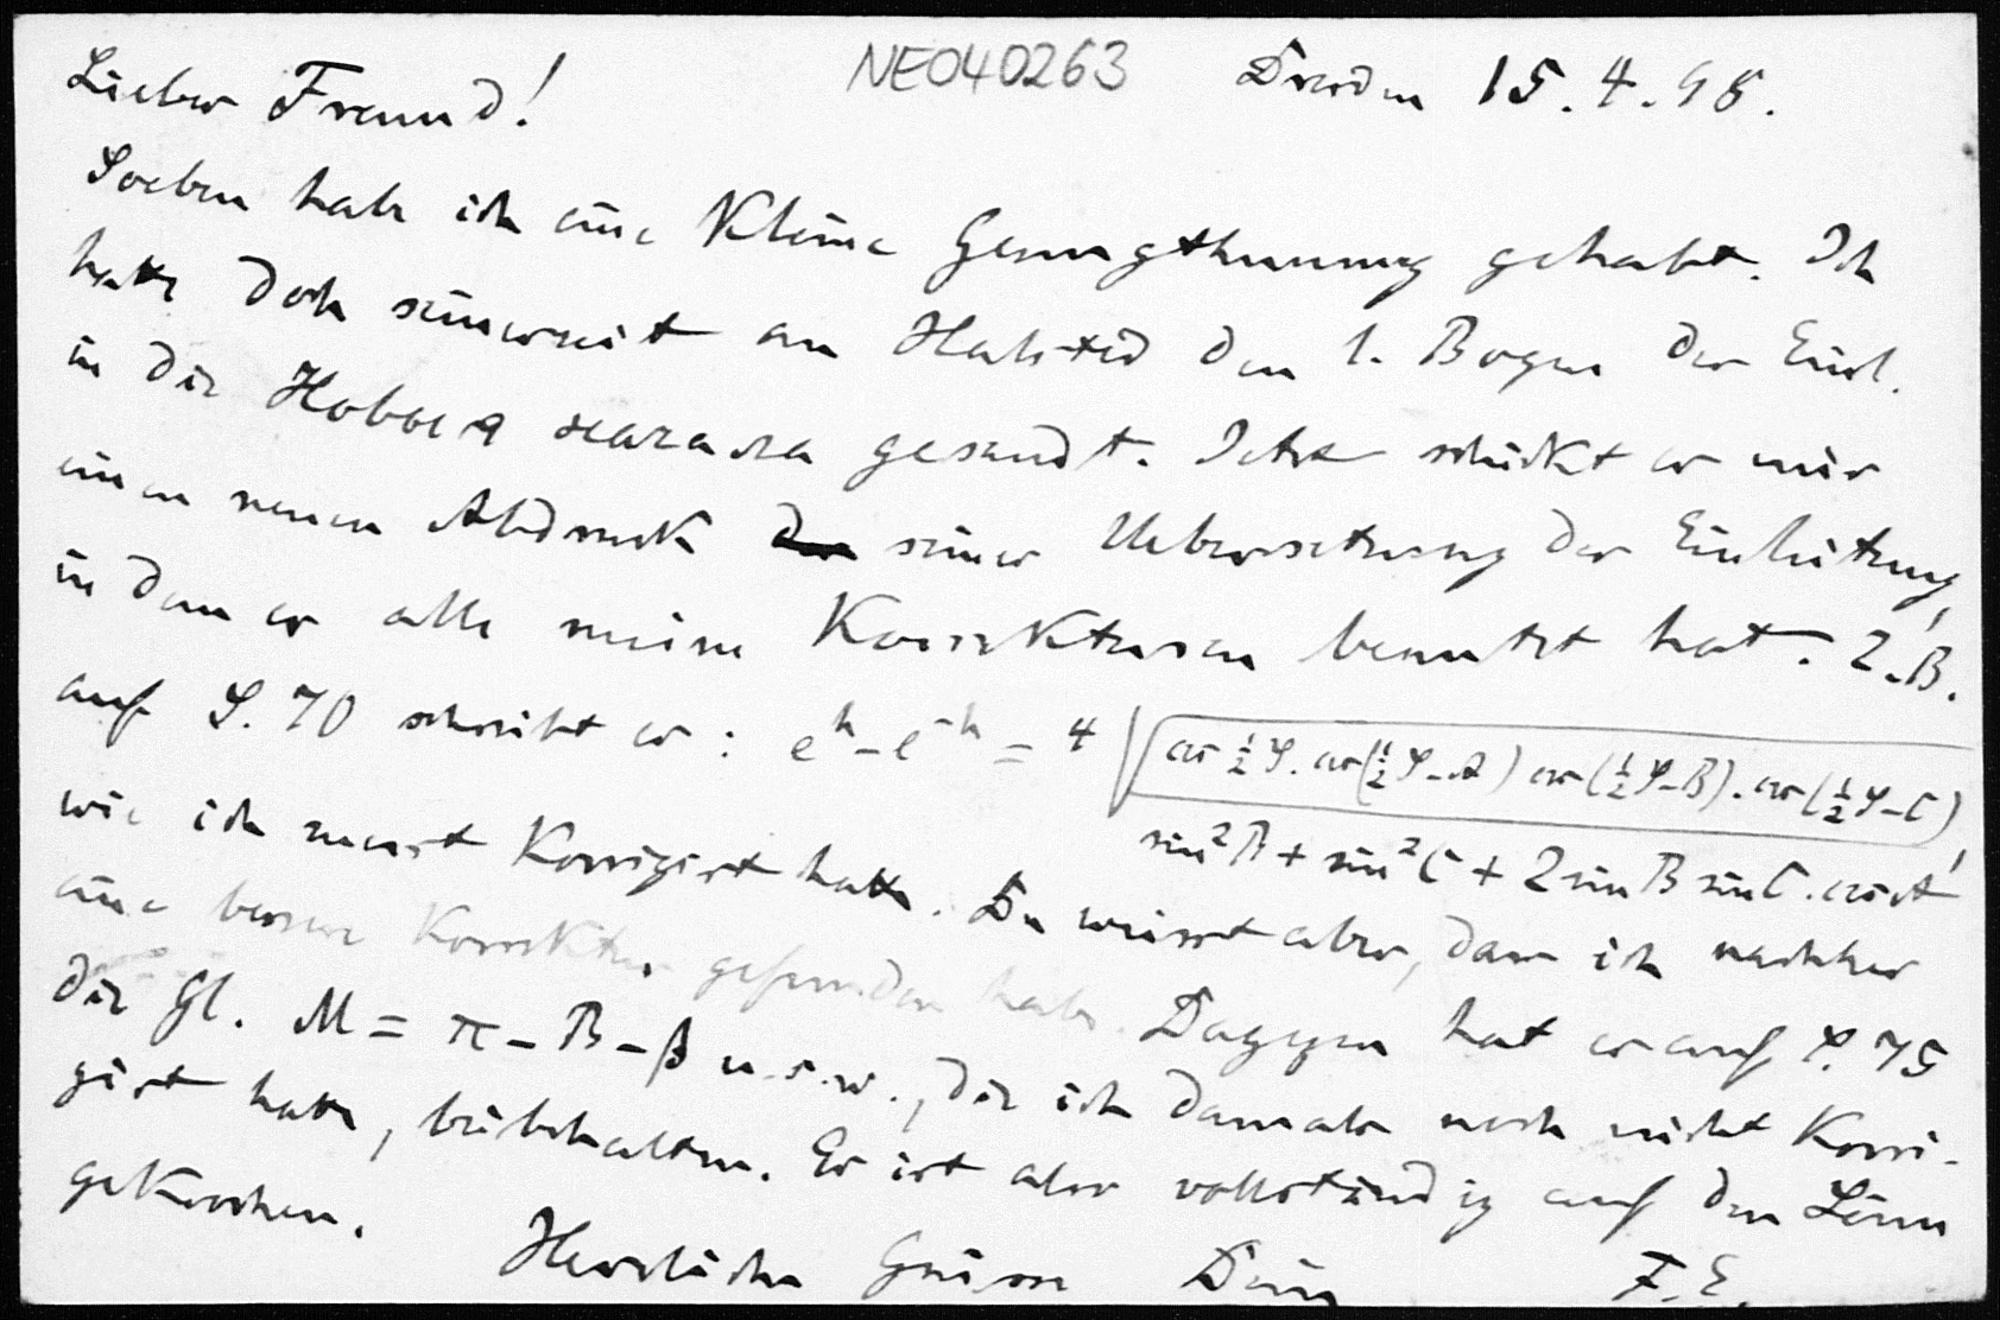 NE040263 Dresden 15.4.98.
Lieber Freund!
Soeben habe ich eine kleine Genugthuung gehabt. Ich
hatte doch seinerzeit an Halsted den 1. Bogen der Einl.
in die Новыя начала gesandt. Jetzt schickt er mir
einen neuen Abdruck seiner Uebersetzung der Einleitung,
in dem er alle meine Korrekturen benutzt hat. Z.B.
auf S. 70 schreibt er: e^h - e^-h = 4 √ cos ½ S. cos(½ S-A) cos(½ S-B). cos(½ S-C)
sin²B + sin²C + 2 sin B sin C. cos A'
wie ich zuerst korrigirt hatte. Du weisst aber, dass ich nachher
eine bessere Korrektur gefunden habe. Dagegen hat er auf S. 75
die Gl. M = π - B - β u.s.w., die ich damals noch nicht korri-
girt hatte, beibehalten. Er ist also vollständig auf den Leim
gekrochen.
Herzliche Grüsse Dein F.E.